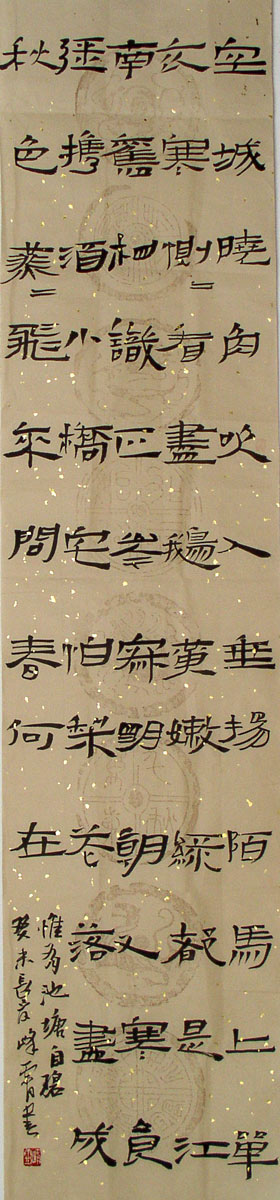 空城曉角吹入垂楊陌馬上單
衣寒惻〻看盡鵝黃嫩綠都是江
南舊相識正岑寂明朝又寒食
彊攜酒小橋宅怕梨花落盡成
秋色燕〻飛來問春何在
惟有池塘自碧
癸未書